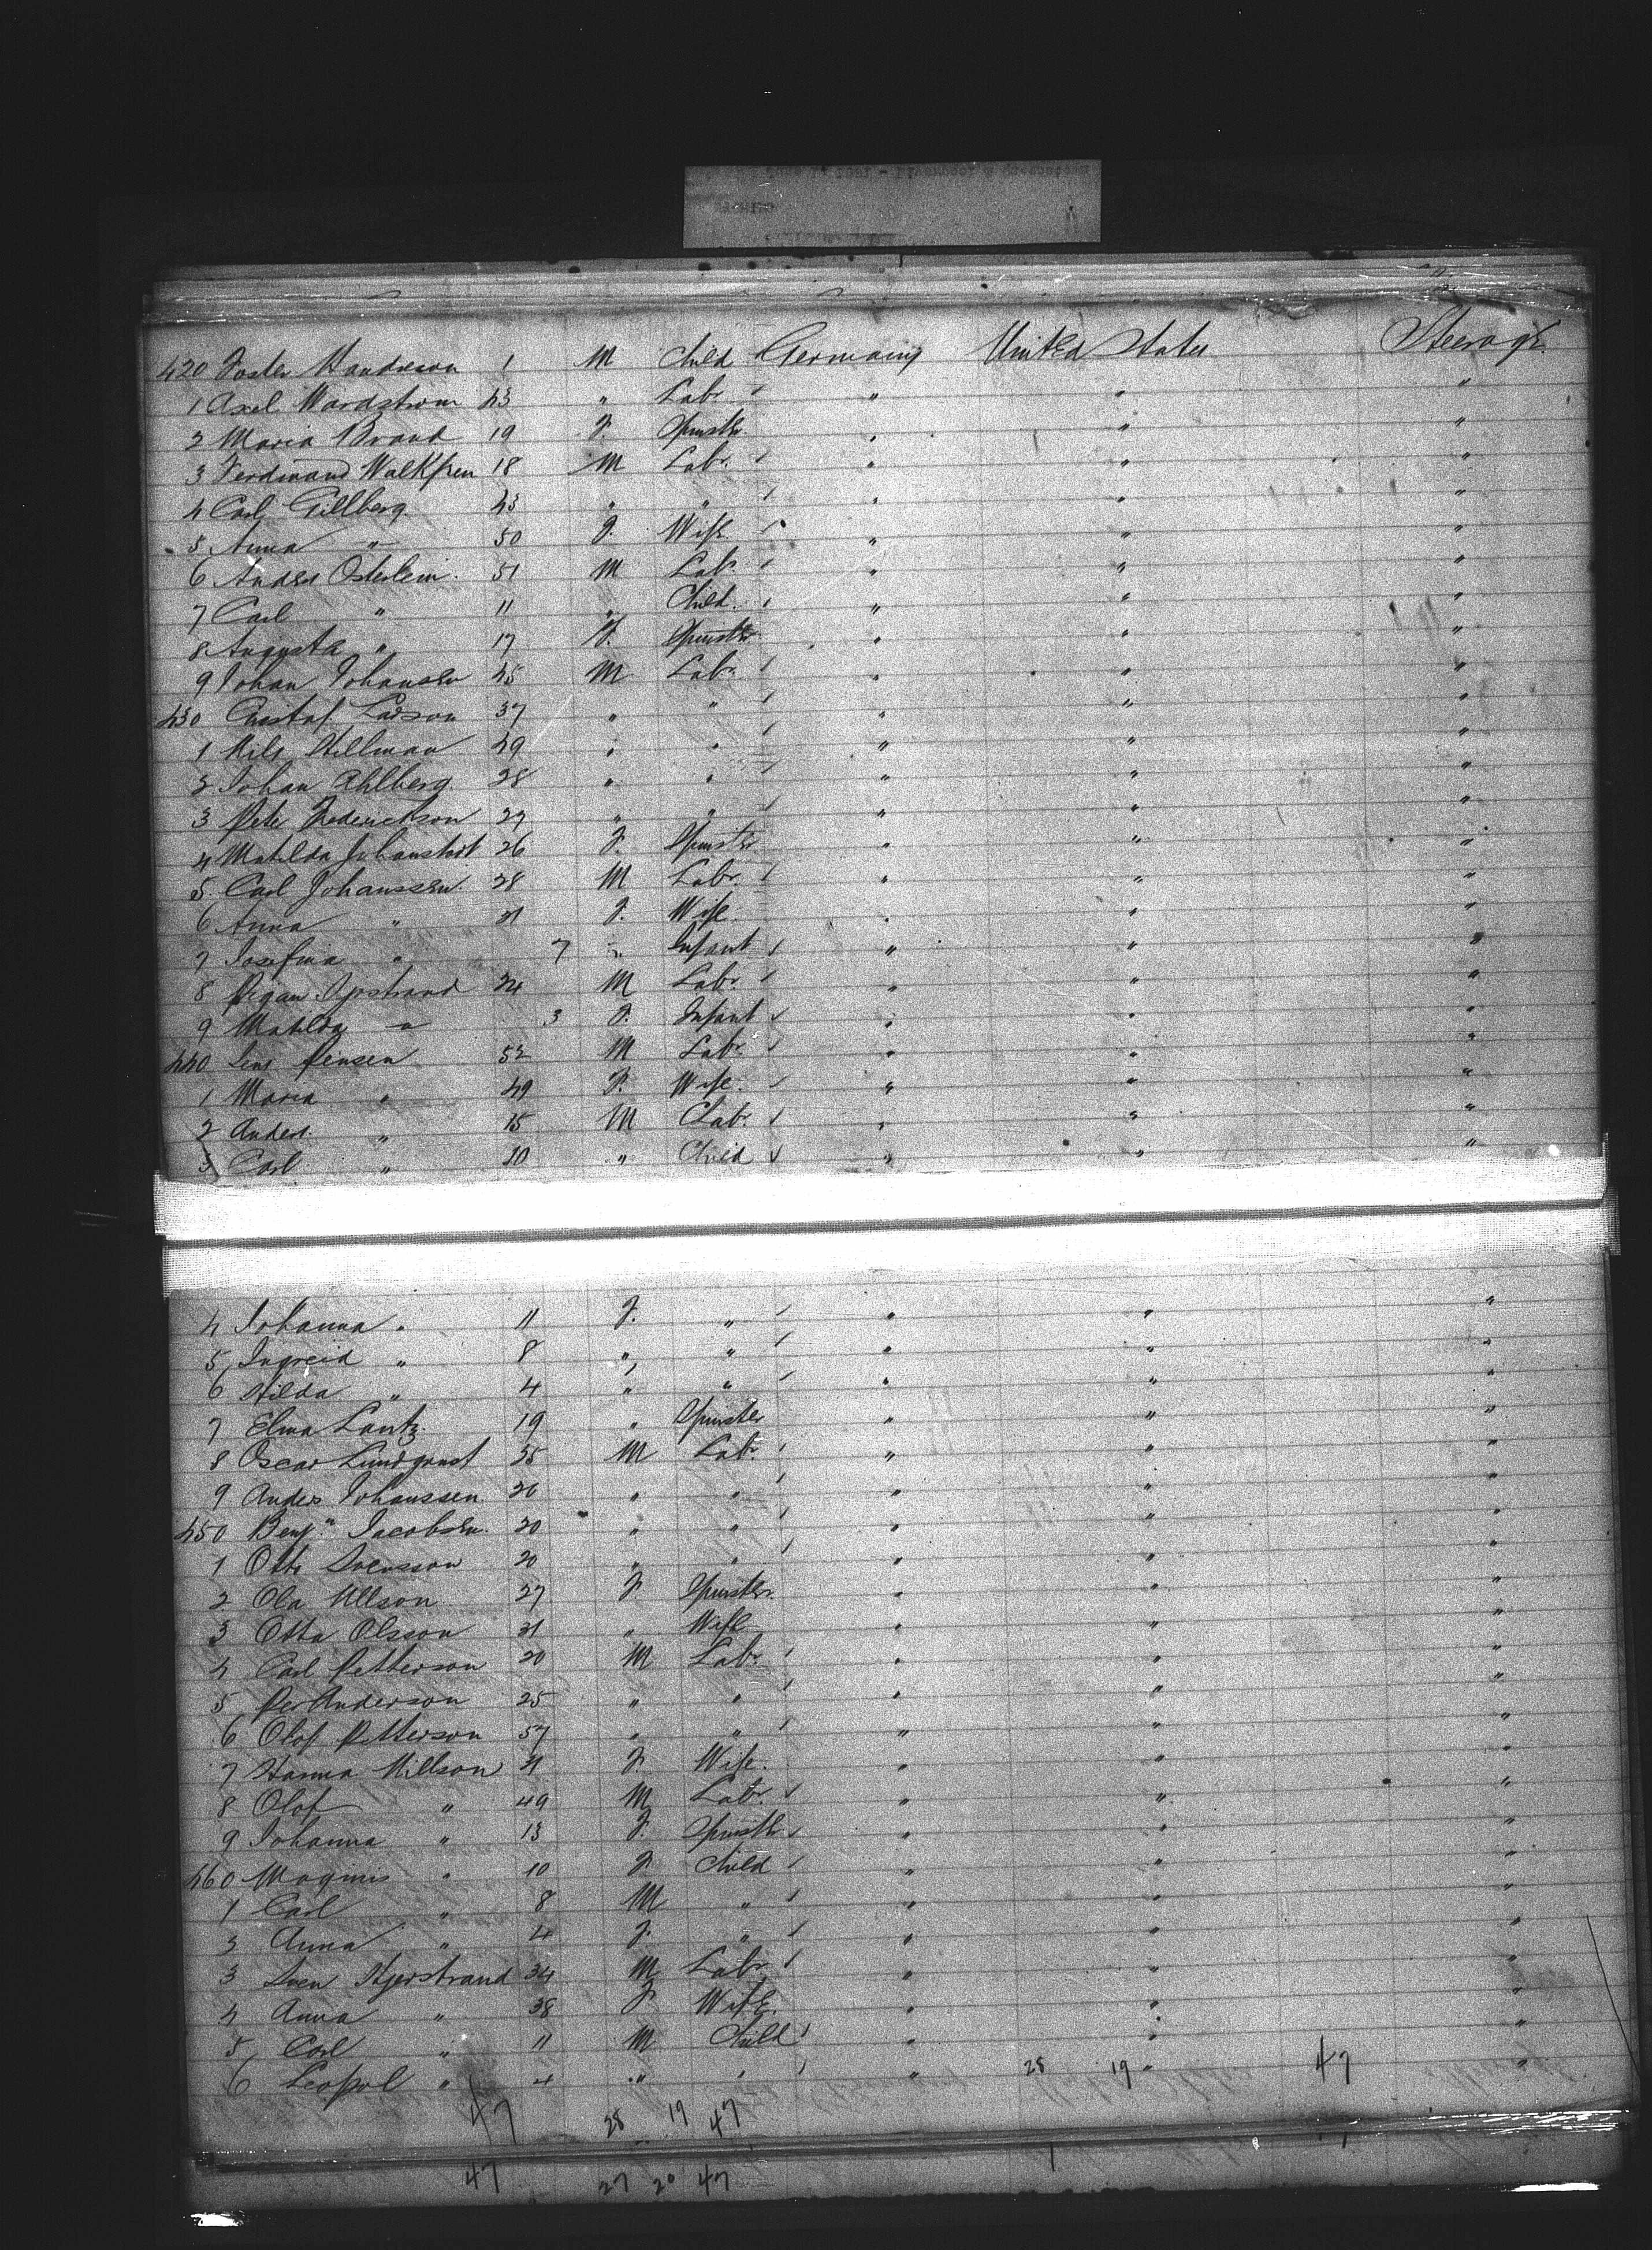 420 Foster Handreson 1 M Child Germany United States Steerage.
1 Axel Wardstrom 43 " Labr. " " "
2 Maria Brand 19 F. Spinstr. " " "
3 Ferdinand 18 M Labr. " " "
4 Carl Gillberg 43 " " " " "
5 Anna " 50 F. Wife. " " "
6 Anders Osterlein. 51 M Labr. " " "
7 Carl " 11 " Child. " " "
8 Augusta " 17 F. Spinster " " "
9 Johan Johansen 45 M Labr. " " "
430 Gustaf Larson 37 " " " " "
1 Nils Hillman 49 " " " " "
2 Johan Ahlberg. 28 " " " " "
3 Peter Frederickson 27 " " " " "
4 Matilda 26 F. Spinster " " "
5 Carl Johanssen. 28 M Labr. " " "
6 Anna " 31 F. Wife. " " "
7 Josefina " 7 " Infant " " "
8 24 M Labr. " " "
9 Matilda " 3 F. Infant " " "
440 Jens Pensen 52 M Labr. " " "
1 Maria " 49 F. Wife. " " "
2 Anders. " 15 M Labr. " " "
3 Carl " 10 " Child " " "
4 Johanna " 11 F. " " " "
5 Ingreid " 8 " " " " "
6 Hilda " 4 " " " " "
7 Elma Lantz. 19 " Spinster " " "
8 Oscar Lundqvist 35 M Labr. " " "
9 Anders Johanssen. 26 " " " " "
450 Benjn. Jacobsen. 20 " " " " "
1 Otto Svensson 20 " " " " "
2 Ola Nilson 27 F. Spinster. " " "
3 Otta Olsson 31 " Wife " " "
4 Carl Petterson 20 M Labr. " " "
5 Per Anderson 25 " " " " "
6 Olof Petterson 57 " " " " "
7 Hanna Nillson 41 F. Wife. " " "
8 Olof " 49 M Labr. " " "
9 Johanna " 13 F. Spinstr " " "
460 Magnus " 10 F. Child " " "
1 Carl " 8 M " " " "
3 Anna " 4 F. " " " "
3 Sven Hjerstrand 34 M Labr. " " "
4 Anna " 38 F. Wife. " " "
5 Carl " 11 M Child " " "
6 Leopol " 4 " " " 28 19 " 47 "
47 28 19 47
47 27 20 47